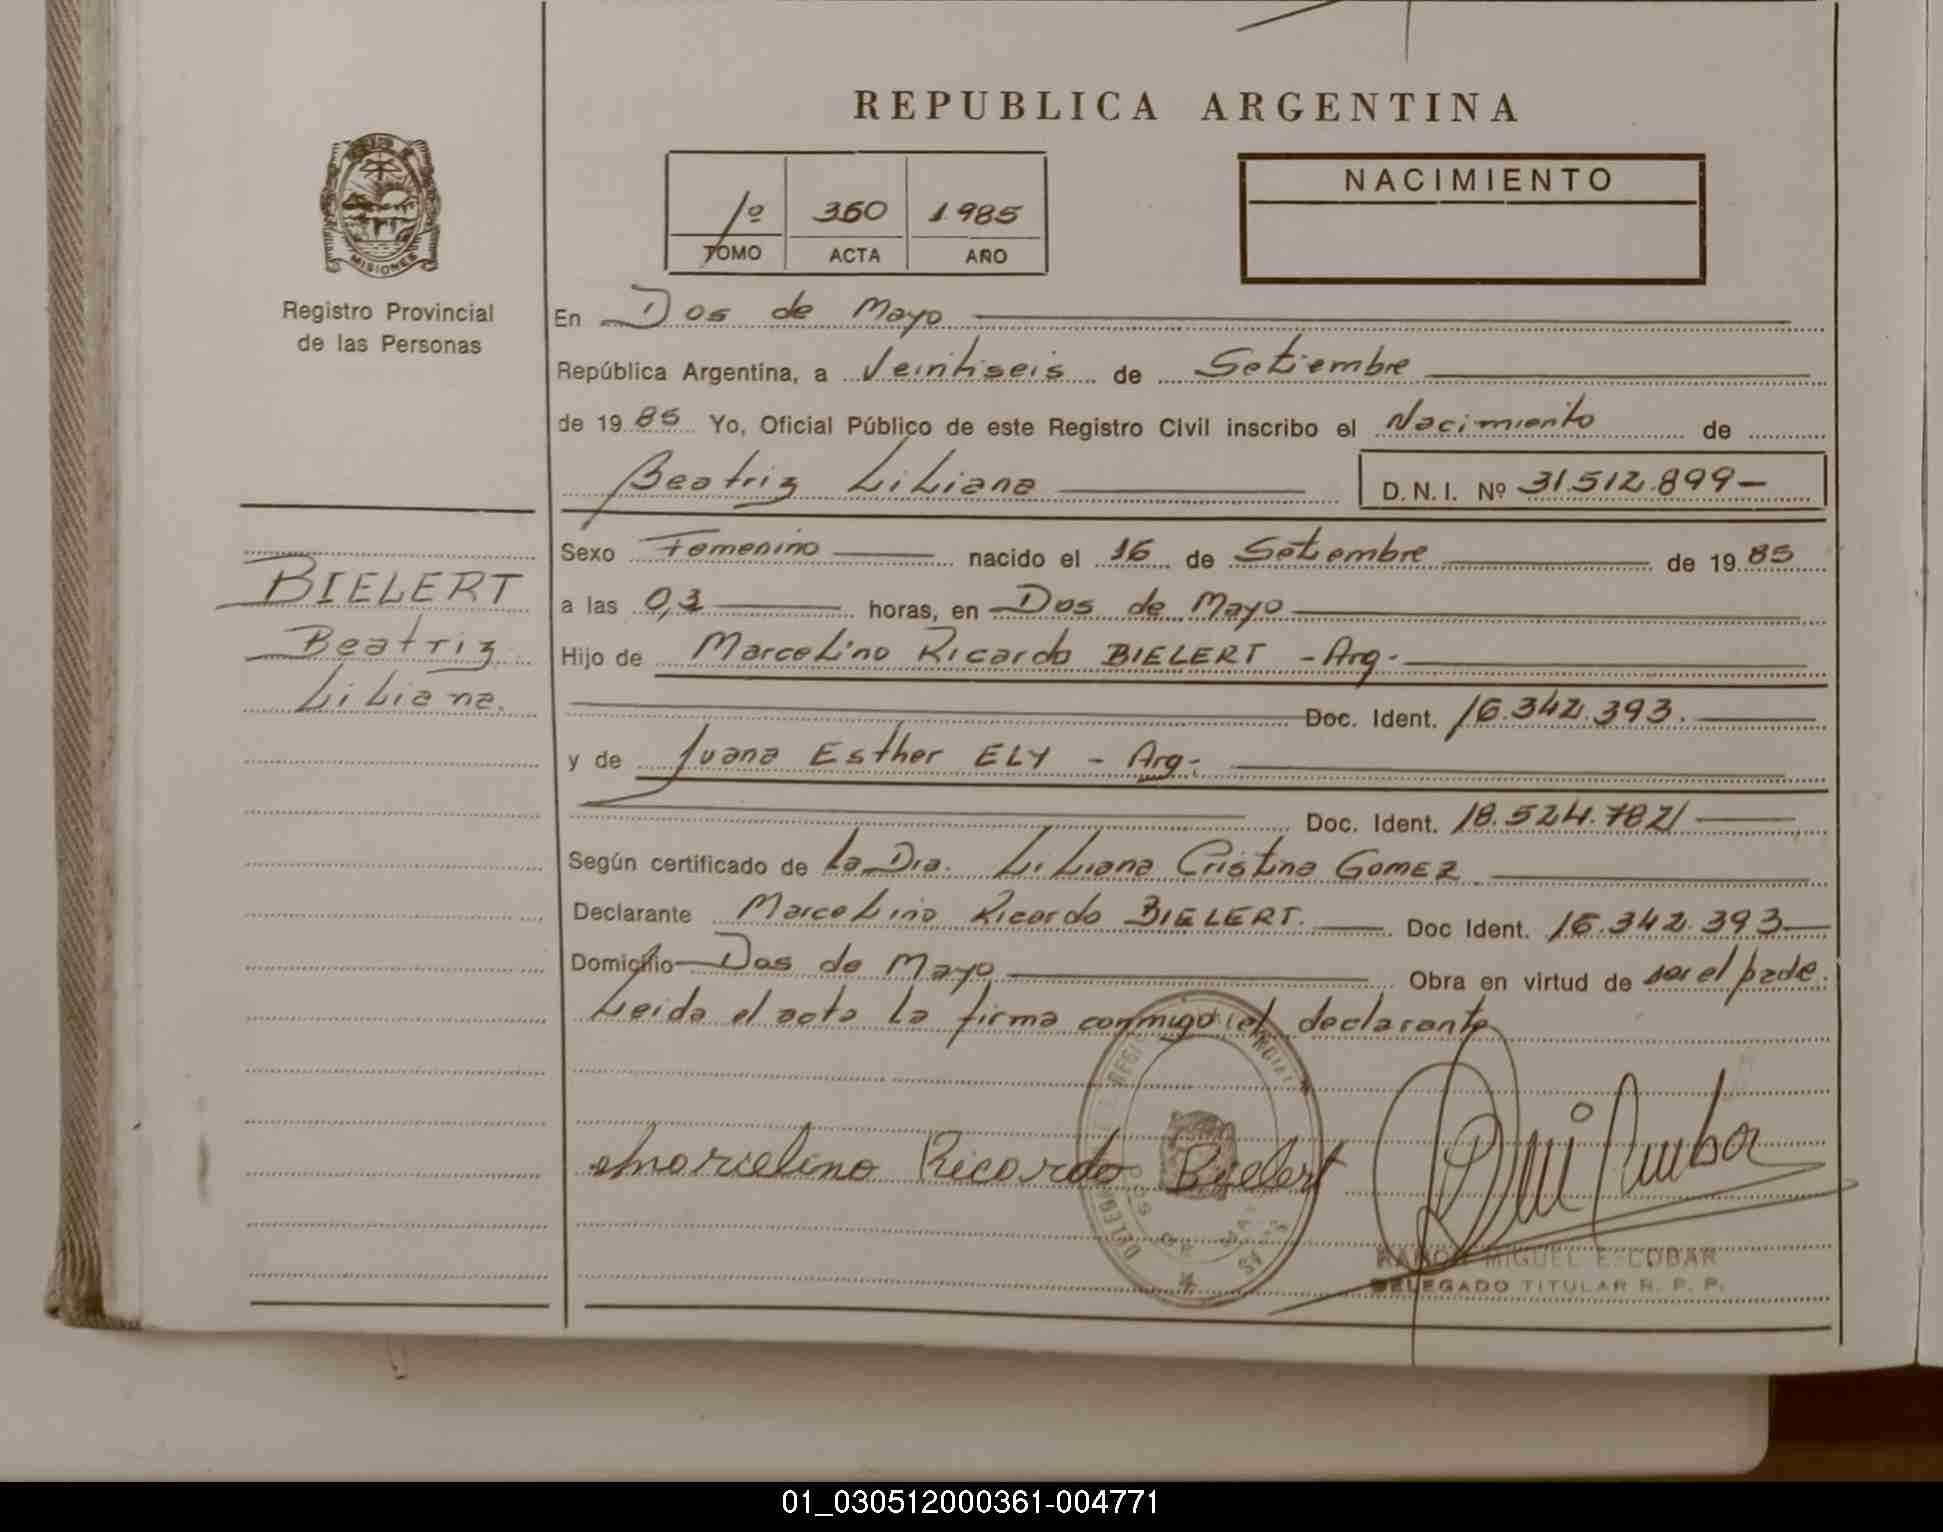 REPUBLICA ARGENTINA
MISIONES
Registro Provincial
de las Personas
1º 360 1.985
TOMO ACTA AÑO
NACIMIENTO
En Dos de Mayo
República Argentina, a Veintiseis de Setiembre
de 19 85 Yo, Oficial Público de este Registro Civil inscribo el Nacimiento de
Beatriz Liliana D.N.I. Nº 31.512.899-
Sexo Femenino nacido el 16 de Setiembre de 19 85
a las horas, en Dos de Mayo
Hijo de Marcelino Ricardo BIELERT - Arg-
Doc. Ident. 16.342.393.
y de Juana Esther ELY - Arg-
Doc. Ident.
Según certificado de La Dra. Liliana Cristina GOMEZ
Declarante Marcelino Ricardo BIELERT. Doc Ident. 16.342.393
Domicilio Dos de Mayo Obra en virtud de ser el padre.
Leida el acta la firma conmigo el declarante
BIELERT
Beatriz
Liliana.
Marcelino Ricardo Bielert
RAMON MIGUEL ESCOBAR
DELEGADO TITULAR R. P. P.
01_030512000361-004771